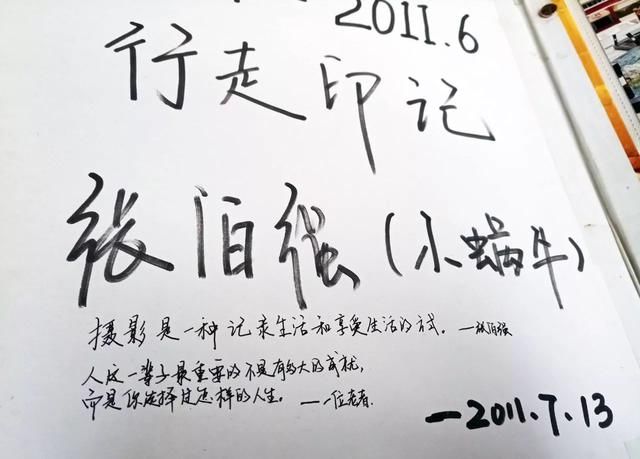 2011.6
行走印记
张伯强(小蜗牛)
摄影是一种记录生活和享受生活的方式。—张伯强
人这一辈子最重要的不是有多大的成就,
而是你选择过怎样的人生。——一位老者.
—2011.7.13